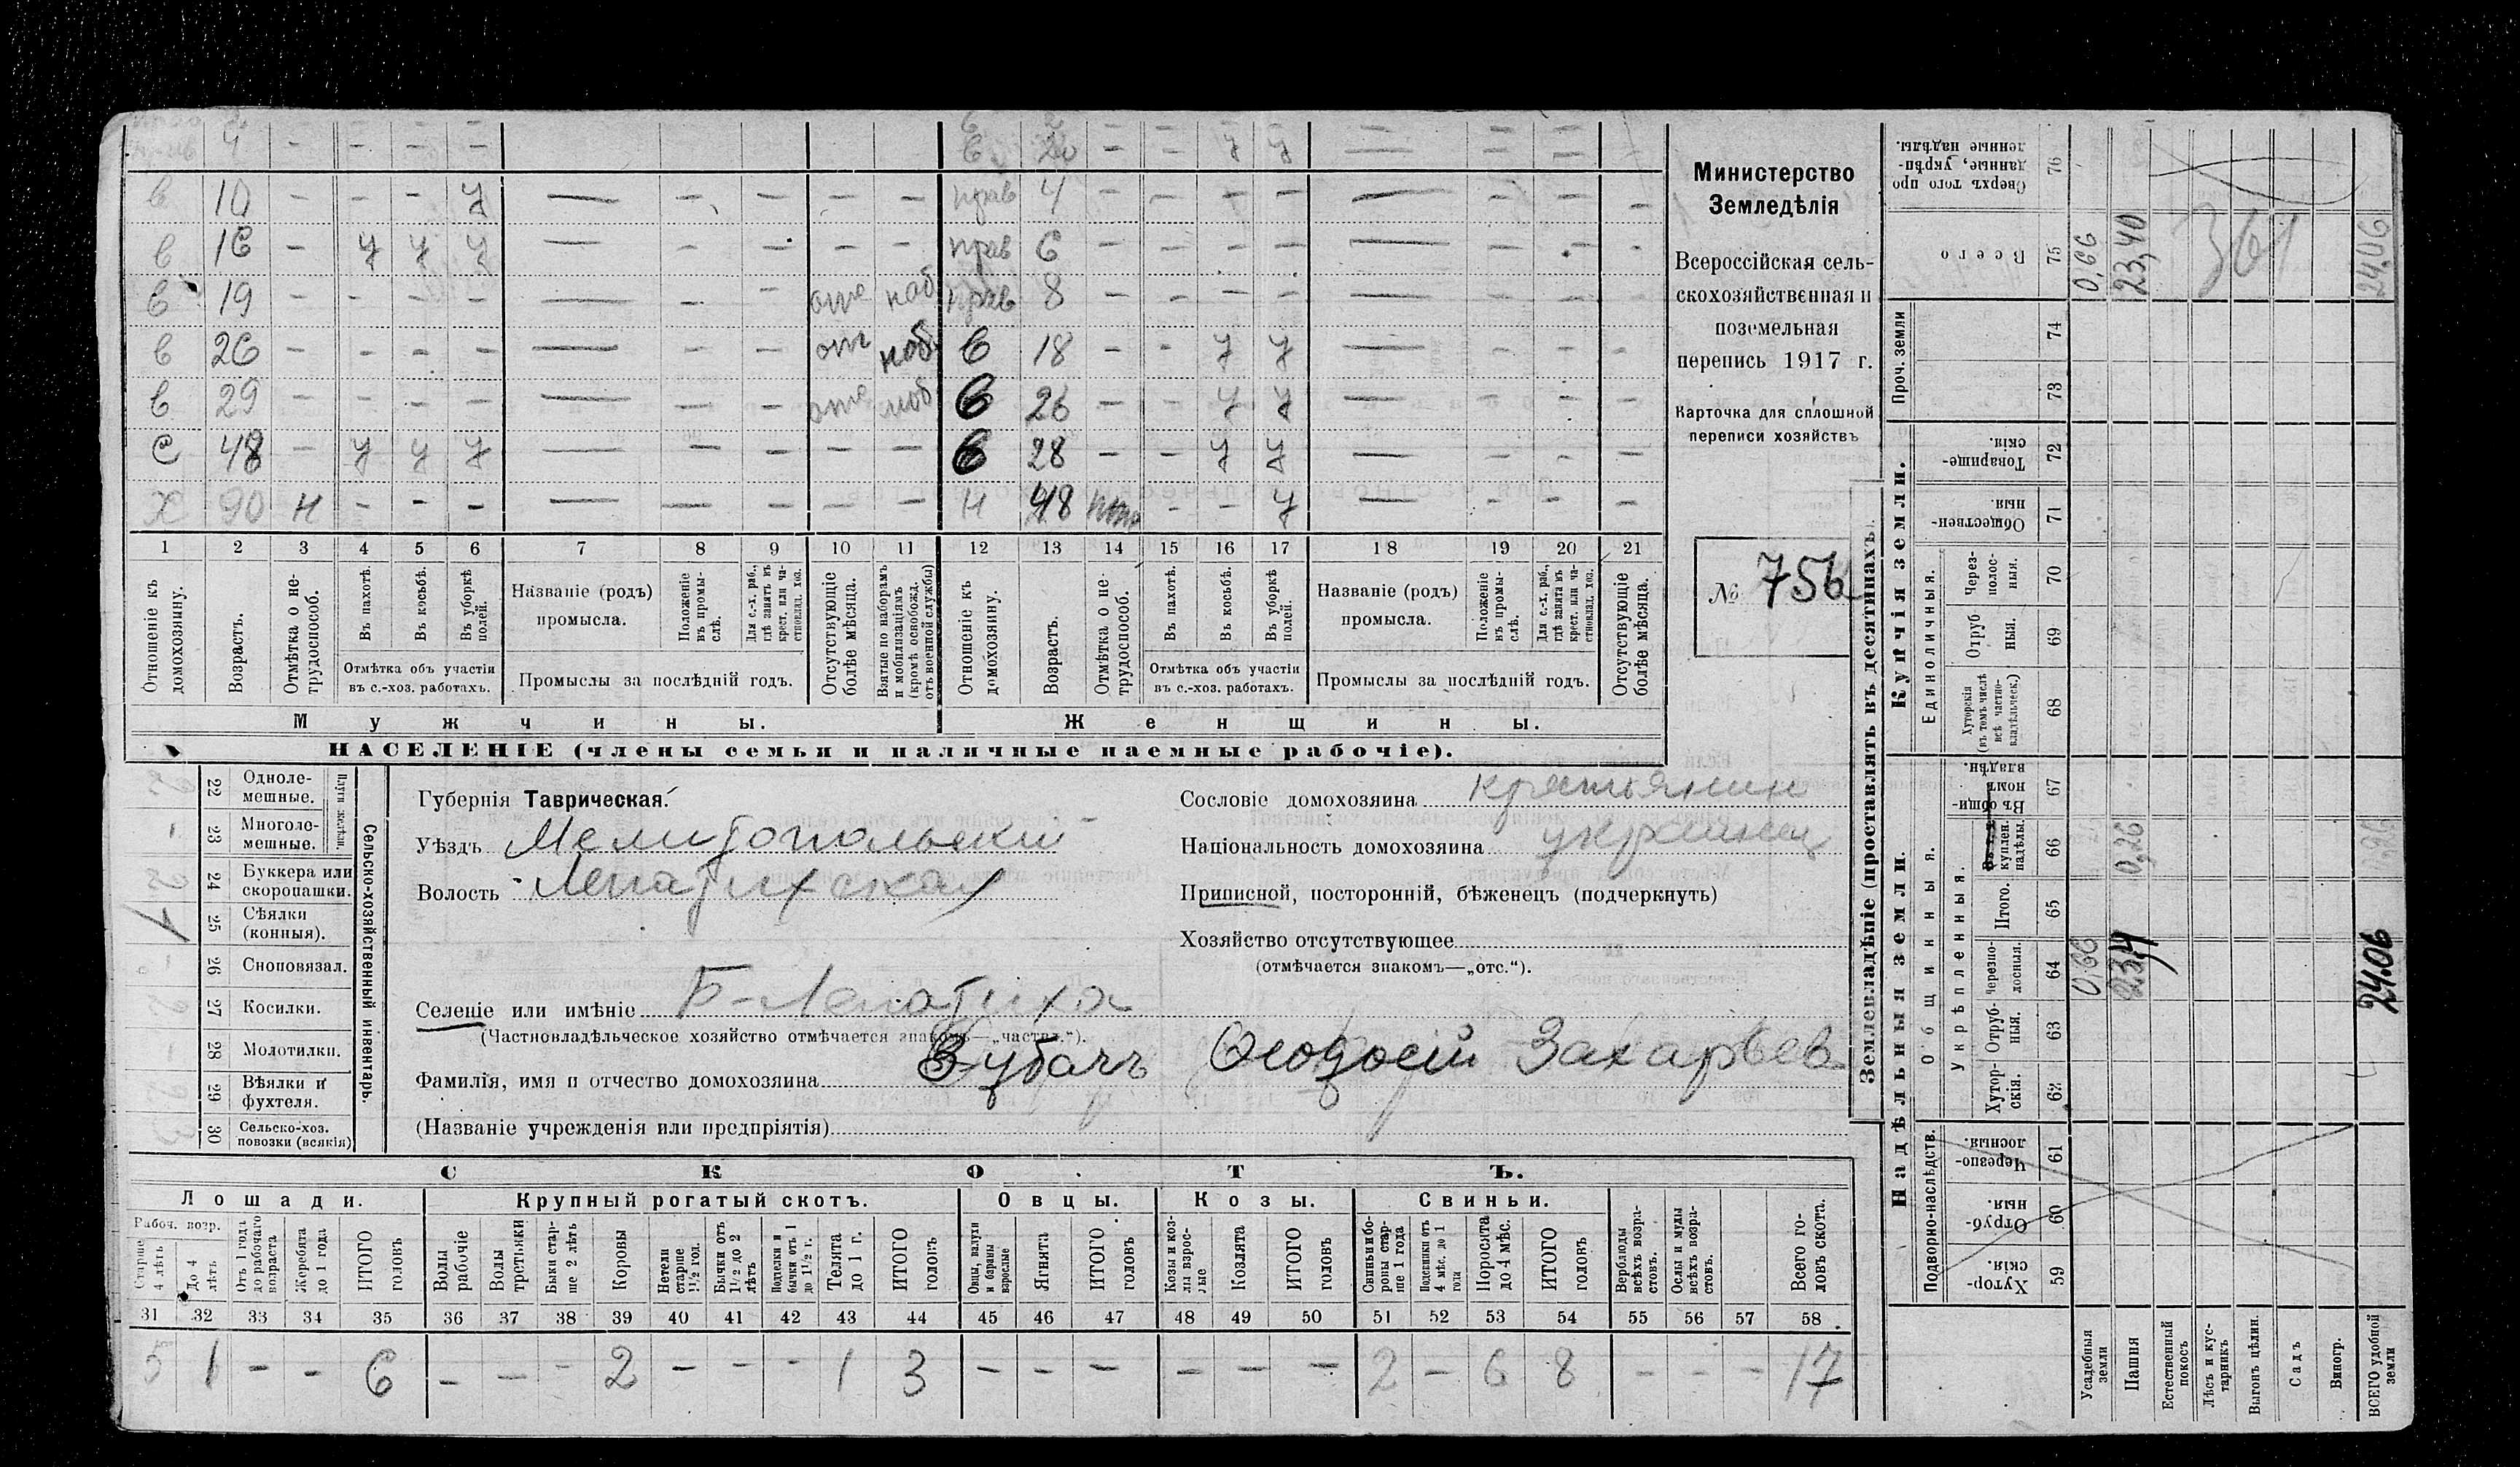 4 — — — — 20 — — У У — — — —
в 10 — — — У — — — — — прав 4 — — — — — — — —
в 16 — У У У — — — — — прав 6 — — — — — — — —
в 19 — — — — — — — прав 8 — — — — — — — —
в 26 — — — — — — — в 18 — — У У — — — —
в 29 — — — — — — — в 26 — — У У — — — —
с 48 — У У У — — — — — в 28 — — У У — — — —
Х 90 Н — — — — — — — — Н 48 — — У — — — —
1 2 3 4 5 6 7 8 9 10 11 12 13 14 15 16 17 18 19 20 21
Отношеніе къ домохозяину.
Возрастъ.
Отмѣтка о нетрудоспособ.
Въ пахотѣ.
Въ косьбѣ.
Въ уборкѣ полей.
Отмѣтка объ участіи
въ с.-хоз. работахъ.
Названіе (родъ)
промысла.
Положеніе въ промыслѣ.
Для с.-х. раб., гдѣ занятъ въ крест. или частновлад. хоз.
Промыслы за послѣдній годъ.
Отсутствующіе болѣе мѣсяца.
Взятые по наборамъ и мобилизаціямъ (кромѣ освобожд. отъ военной службы)
Отношеніе къ домохозяину.
Возрастъ.
Отмѣтка о нетрудоспособ.
Въ пахотѣ.
Въ косьбѣ.
Въ уборкѣ полей.
Отмѣтка объ участіи
въ с.-хоз. работахъ.
Названіе (родъ)
промысла.
Положеніе въ промыслѣ.
Для с.-х. раб., гдѣ занята въ крест. или частновлад. хоз.
Промыслы за послѣдній годъ.
Отсутствующіе болѣе мѣсяца.
Мужчины.
Женщины.
НАСЕЛЕНІЕ (члены семьи и наличные наемные рабочіе).
Министерство
Земледѣлія
Всероссійская сель-
скохозяйственная и
поземельная
перепись 1917 г.
Карточка для сплошной
переписи хозяйствъ
№ 756
22 Однолемешные.
23 Многолемешные.
24 Буккера или скоропашки.
25 Сѣялки (конныя). 1
26 Сноповязал.
27 Косилки.
28 Молотилки.
29 Вѣялки и фухтеля.
30 Сельско-хоз. повозки (всякія)
Плуги желѣзн.
Сельско-хозяйственный инвентарь.
Губернія Таврическая.
Уѣздъ Мелитопольский
Волость Лепатихская
Селеніе или имѣніе Б-Лепатиха
(Частновладѣльческое хозяйство отмѣчается знакомъ—„частвл.“).
Фамилія, имя и отчество домохозяина Зубачъ Ѳеодосій Захарьев
(Названіе учрежденія или предпріятія)
Сословіе домохозяина крестьянин
Національность домохозяина украинец
Приписной, посторонній, бѣженецъ (подчеркнуть)
Хозяйство отсутствующее
(отмѣчается знакомъ—„отс.“).
СКОТЪ.
Лошади. Крупный рогатый скотъ. Овцы. Козы. Свиньи.
Рабоч. возр.
Старше 4 лѣтъ
До 4 лѣтъ
Отъ 1 года до рабочаго возраста
Жеребята до 1 года
ИТОГО головъ
Волы рабочіе
Волы третьяки
Быки старше 2 лѣтъ
Коровы
Нетели старше 1½ год.
Бычки отъ 1½ до 2 лѣтъ
Подтелки и бычки отъ 1 до 1½ г.
Телята до 1 г.
ИТОГО головъ
Овцы, валухи и бараны взрослые
Ягнята
ИТОГО головъ
Козы и козлы взрослые
Козлята
ИТОГО головъ
Свиньи и боровы старше 1 года
Подсвинки отъ 4 мѣс. до 1 года
Поросята до 4 мѣс.
ИТОГО головъ
Верблюды всѣхъ возрастовъ.
Ослы и мулы всѣхъ возрастовъ.
Всего головъ скота.
31 32 33 34 35 36 37 38 39 40 41 42 43 44 45 46 47 48 49 50 51 52 53 54 55 56 57 58
5 1 — — 6 — — — 2 — — — 1 3 — — — — — — 2 — 6 8 — — — 17
Землевладѣніе (проставлять въ десятинахъ).
Надѣльныя земли.
Купчія земли.
Проч. земли
Подворно-наслѣдств.
Общинныя.
Укрѣпленныя.
Единоличныя.
Хуторскія. 59
Отрубныя. 60
Черезполосныя. 61
Хуторскія. 62
Отрубныя. 63
Черезполосныя. 64
Итого. 65
куплен. надѣлы. 66
Въ общинномъ владѣн. 67
Хуторскія (въ томъ числѣ всѣ частновладѣльческ.) 68
Отрубныя. 69
Черезполосныя. 70
Общественныя. 71
Товарищескія. 72
73
74
Всего 75
Сверхъ того проданные, укрѣпленные надѣлы. 76
Усадебныя земли 0,66 0,66
Пашня 23,4 0,26 23,40
Естественный покосъ
Лѣсъ и кустарникъ 361
Выгонъ цѣлин.
Садъ
Виногр.
ВСЕГО удобной земли 24.06 0,26 24,06